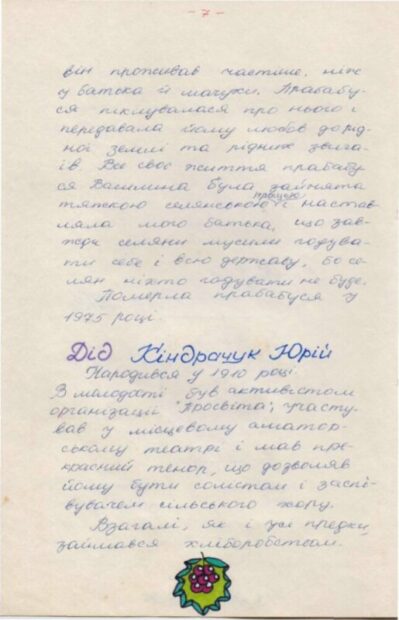 - 7 -
він проживав частіше, ніж
у батька й мачухи. Прабабу-
ся піклувалася про нього і
передавала йому любов до рід-
ної землі та рідних звича-
їв. Все своє життя прабабу-
ся Василина була зайнята
тяжкою селянською працею і настав-
ляла мого батька, що зав-
жди селяни мусили годува-
ти себе і всю державу, бо се-
лян ніхто годувати не буде.
Померла прабабуся у
1975 році.
Дід Кіндрачук Юрій
Народився у 1910 році.
В молодості був активістом
організації "Просвіта", участу-
вав у місцевому аматор-
ському театрі і мав пре-
красний тенор, що дозволяв
йому бути солістом і заспі-
вувачем сільського хору.
Взагалі, як і усі предки,
займався хліборобством.